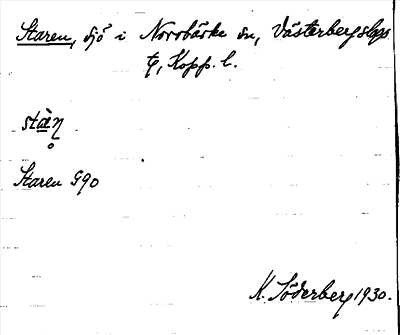 Staren, sjö i Norrbärke sn, Västerbergslags
tg, Kopp. l.
Staren G90
K. Söderberg 1930.